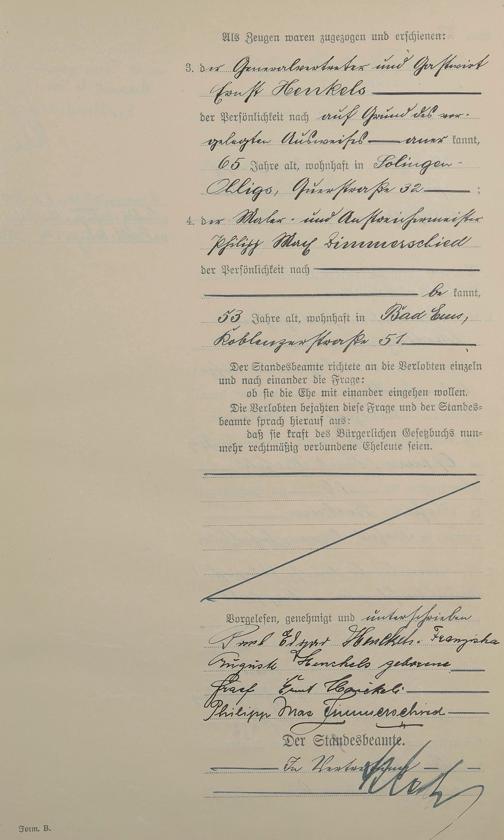 Als Zeugen waren zugezogen und erschienen:
3. der Generalvertreter und Gastwirt
Ernst Henkels
der Persönlichkeit nach auf Grund des vor-
gelegten Ausweises aner kannt,
65 Jahre alt, wohnhaft in Solingen-
Ohligs, Querstraße 32 ;
4. der Maler- und Anstreichermeister
Philipp Max Zimmerschied
der Persönlichkeit nach
be kannt,
53 Jahre alt, wohnhaft in Bad Ems,
Koblenzerstraße 51
Der Standesbeamte richtete an die Verlobten einzeln
und nach einander die Frage:
ob sie die Ehe mit einander eingehen wollen.
Die Verlobten bejahten diese Frage und der Standes-
beamte sprach hierauf aus:
daß sie kraft des Bürgerlichen Gesetzbuchs nun-
mehr rechtmäßig verbundene Eheleute seien.
Vorgelesen, genehmigt und unterschrieben
Edgar Henckels. Franziska
Auguste Henckels geborene
Ernst Henckels.
Philipp Max Zimmerschied
Der Standesbeamte.
In Vertretung
Form. B.